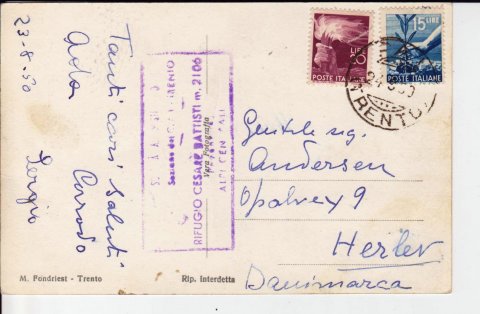 23-8-50
Tanti cari saluti
Ada Corrado
Sergio
S. A. T.
Sezione del C.A.I. TRENTO
RIFUGIO CESARE BATTISTI m. 2106
Vera Fotografia
LIRE
20
POSTE ITALIANE
15 LIRE
POSTE ITALIANE
TRENTO
Gentile sig.
Andersen
Opalvej 9
Herlev
Danimarca
M. Fondriest - Trento
Rip. interdetta